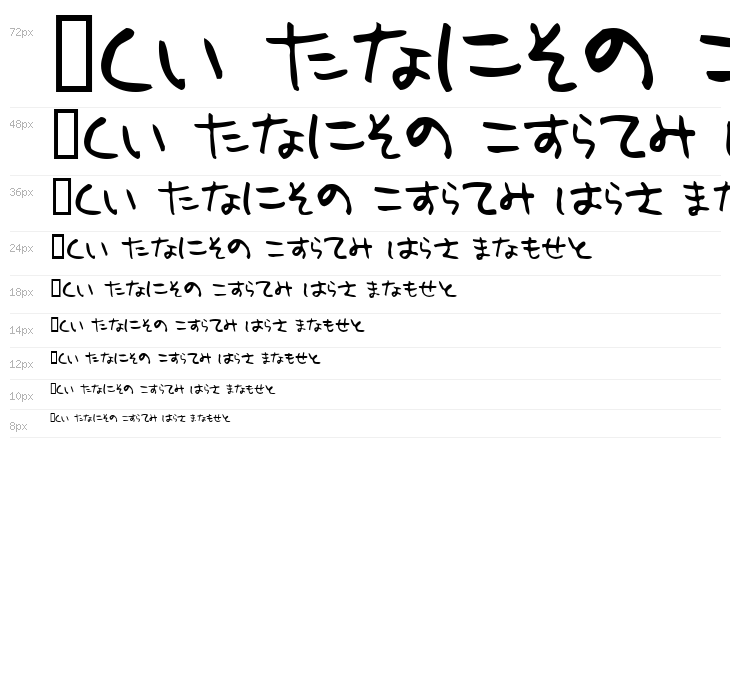 72px くい たなにその こ
48px くい たなにその こすらてみ
36px くい たなにその こすらてみ はらさ まな
24px くい たなにその こすらてみ はらさ まなもせと
18px くい たなにその こすらてみ はらさ まなもせと
14px くい たなにその こすらてみ はらさ まなもせと
12px くい たなにその こすらてみ はらさ まなもせと
10px くい たなにその こすらてみ はらさ まなもせと
8px くい たなにその こすらてみ はらさ まなもせと